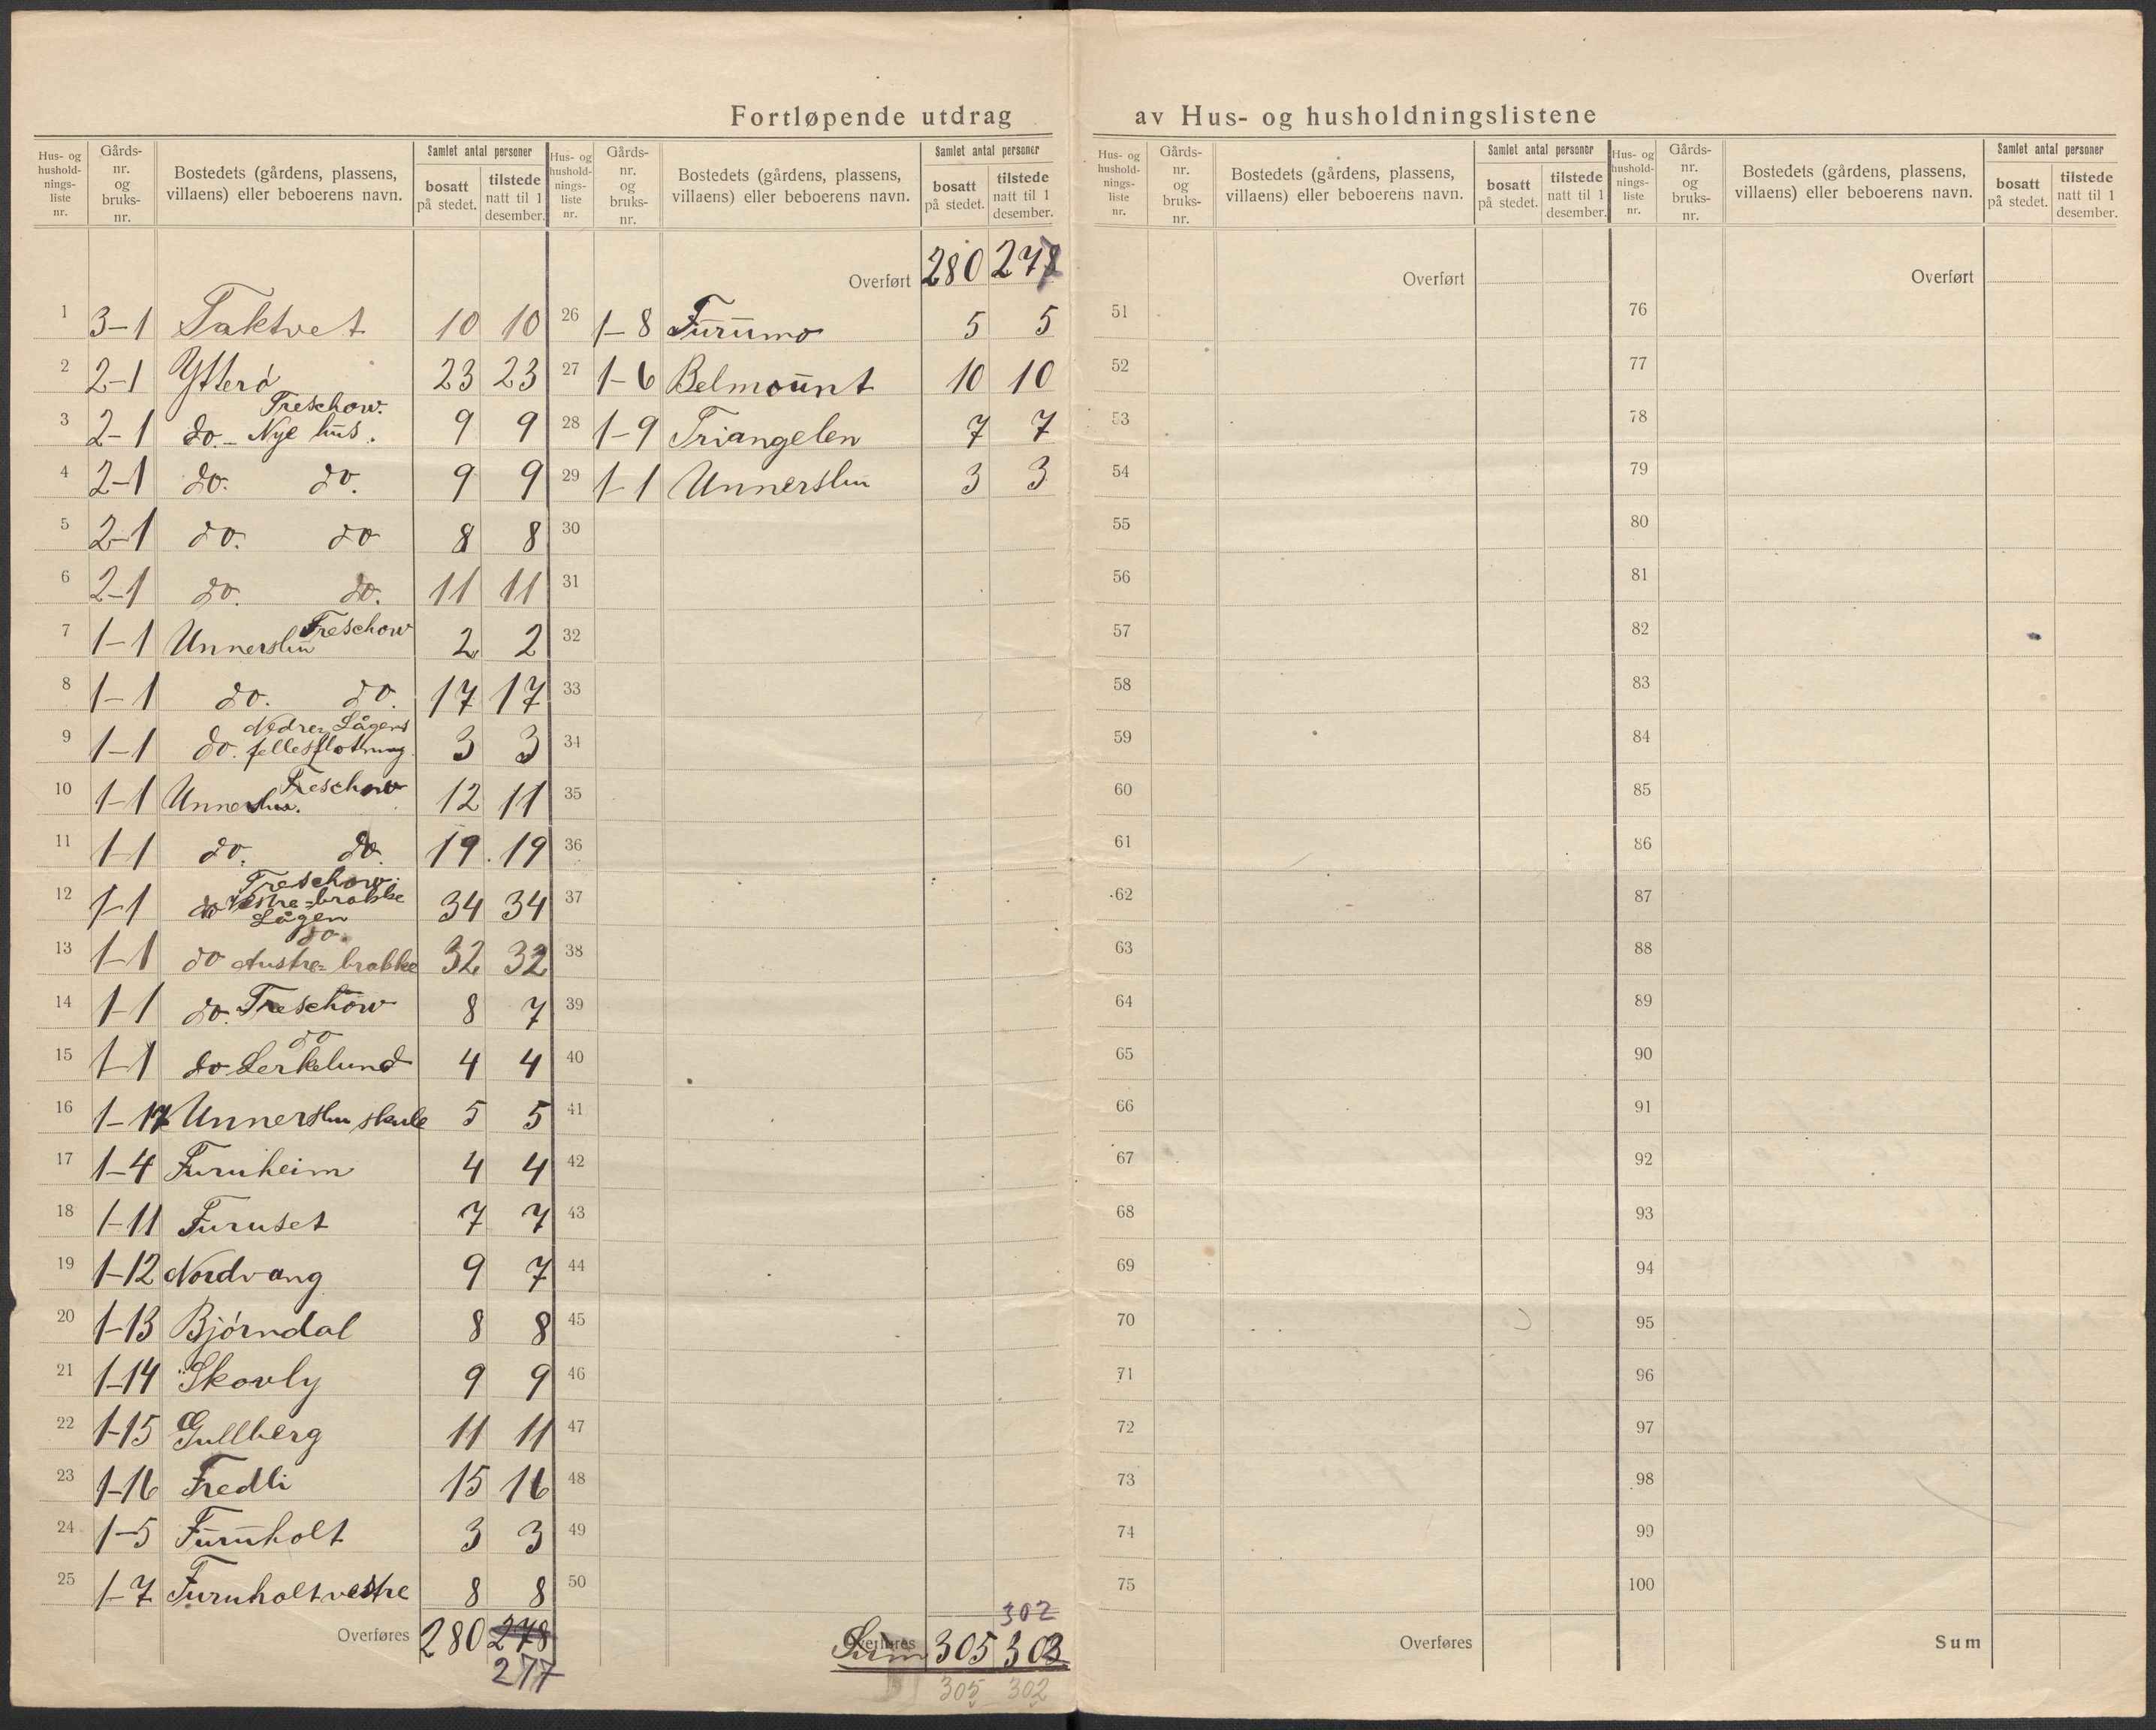 Fortløpende utdrag av Hus- og husholdningslistene
Hus- og hushold-nings-liste nr. | Gårds-nr. og bruks-nr. | Bostedets (gårdens, plassens, villaens) eller beboerens navn. | Samlet antal personer | bosatt på stedet. | tilstede natt til 1 desember.
1 3-1 Taktvet 10 10
2 2-1 Ytterø 23 23
3 2-1 do. - Treschow. Nye hus. 9 9
4 2-1 do. do. 9 9
5 2-1 do. do 8 8
6 2-1 do. do. 11 11
7 1-1 Unnerslu Treschow 2 2
8 1-1 do. do. 17 17
9 1-1 do. Nedre Lågens fellesfløtning. 3 3
10 1-1 Unnerslu. Treschow 12 11
11 1-1 do. do. 19 19
12 1-1 do Treschow. Vestre-brakke Lågen 34 34
13 1-1 do do. Austre-brakke 32 32
14 1-1 do. Treschow 8 7
15 1-1 do do Lerkelund 4 4
16 1-17 Unnerslu skule 5 5
17 1-4 Furuheim 4 4
18 1-11 Furuset 7 7
19 1-12 Nordvang 9 7
20 1-13 Bjørndal 8 8
21 1-14 Skovly 9 9
22 1-15 Gullberg 11 11
23 1-16 Fredli 15 16
24 1-5 Furuholt 3 3
25 1-7 Furuholt vestre 8 8
Overføres 280 278
277
Hus- og hushold-nings-liste nr. | Gårds-nr. og bruks-nr. | Bostedets (gårdens, plassens, villaens) eller beboerens navn. | Samlet antal personer | bosatt på stedet. | tilstede natt til 1 desember.
Overført 280 277
26 1-8 Furumo 5 5
27 1-6 Belmount 10 10
28 1-9 Triangelen 7 7
29 1-1 Unnerslu 3 3
30
31
32
33
34
35
36
37
38
39
40
41
42
43
44
45
46
47
48
49
50
302
Overføres Sum 305 303
305 302
Hus- og hushold-nings-liste nr. | Gårds-nr. og bruks-nr. | Bostedets (gårdens, plassens, villaens) eller beboerens navn. | Samlet antal personer | bosatt på stedet. | tilstede natt til 1 desember.
Overført
51
52
53
54
55
56
57
58
59
60
61
62
63
64
65
66
67
68
69
70
71
72
73
74
75
Overføres
Hus- og hushold-nings-liste nr. | Gårds-nr. og bruks-nr. | Bostedets (gårdens, plassens, villaens) eller beboerens navn. | Samlet antal personer | bosatt på stedet. | tilstede natt til 1 desember.
Overført
76
77
78
79
80
81
82
83
84
85
86
87
88
89
90
91
92
93
94
95
96
97
98
99
100
Sum